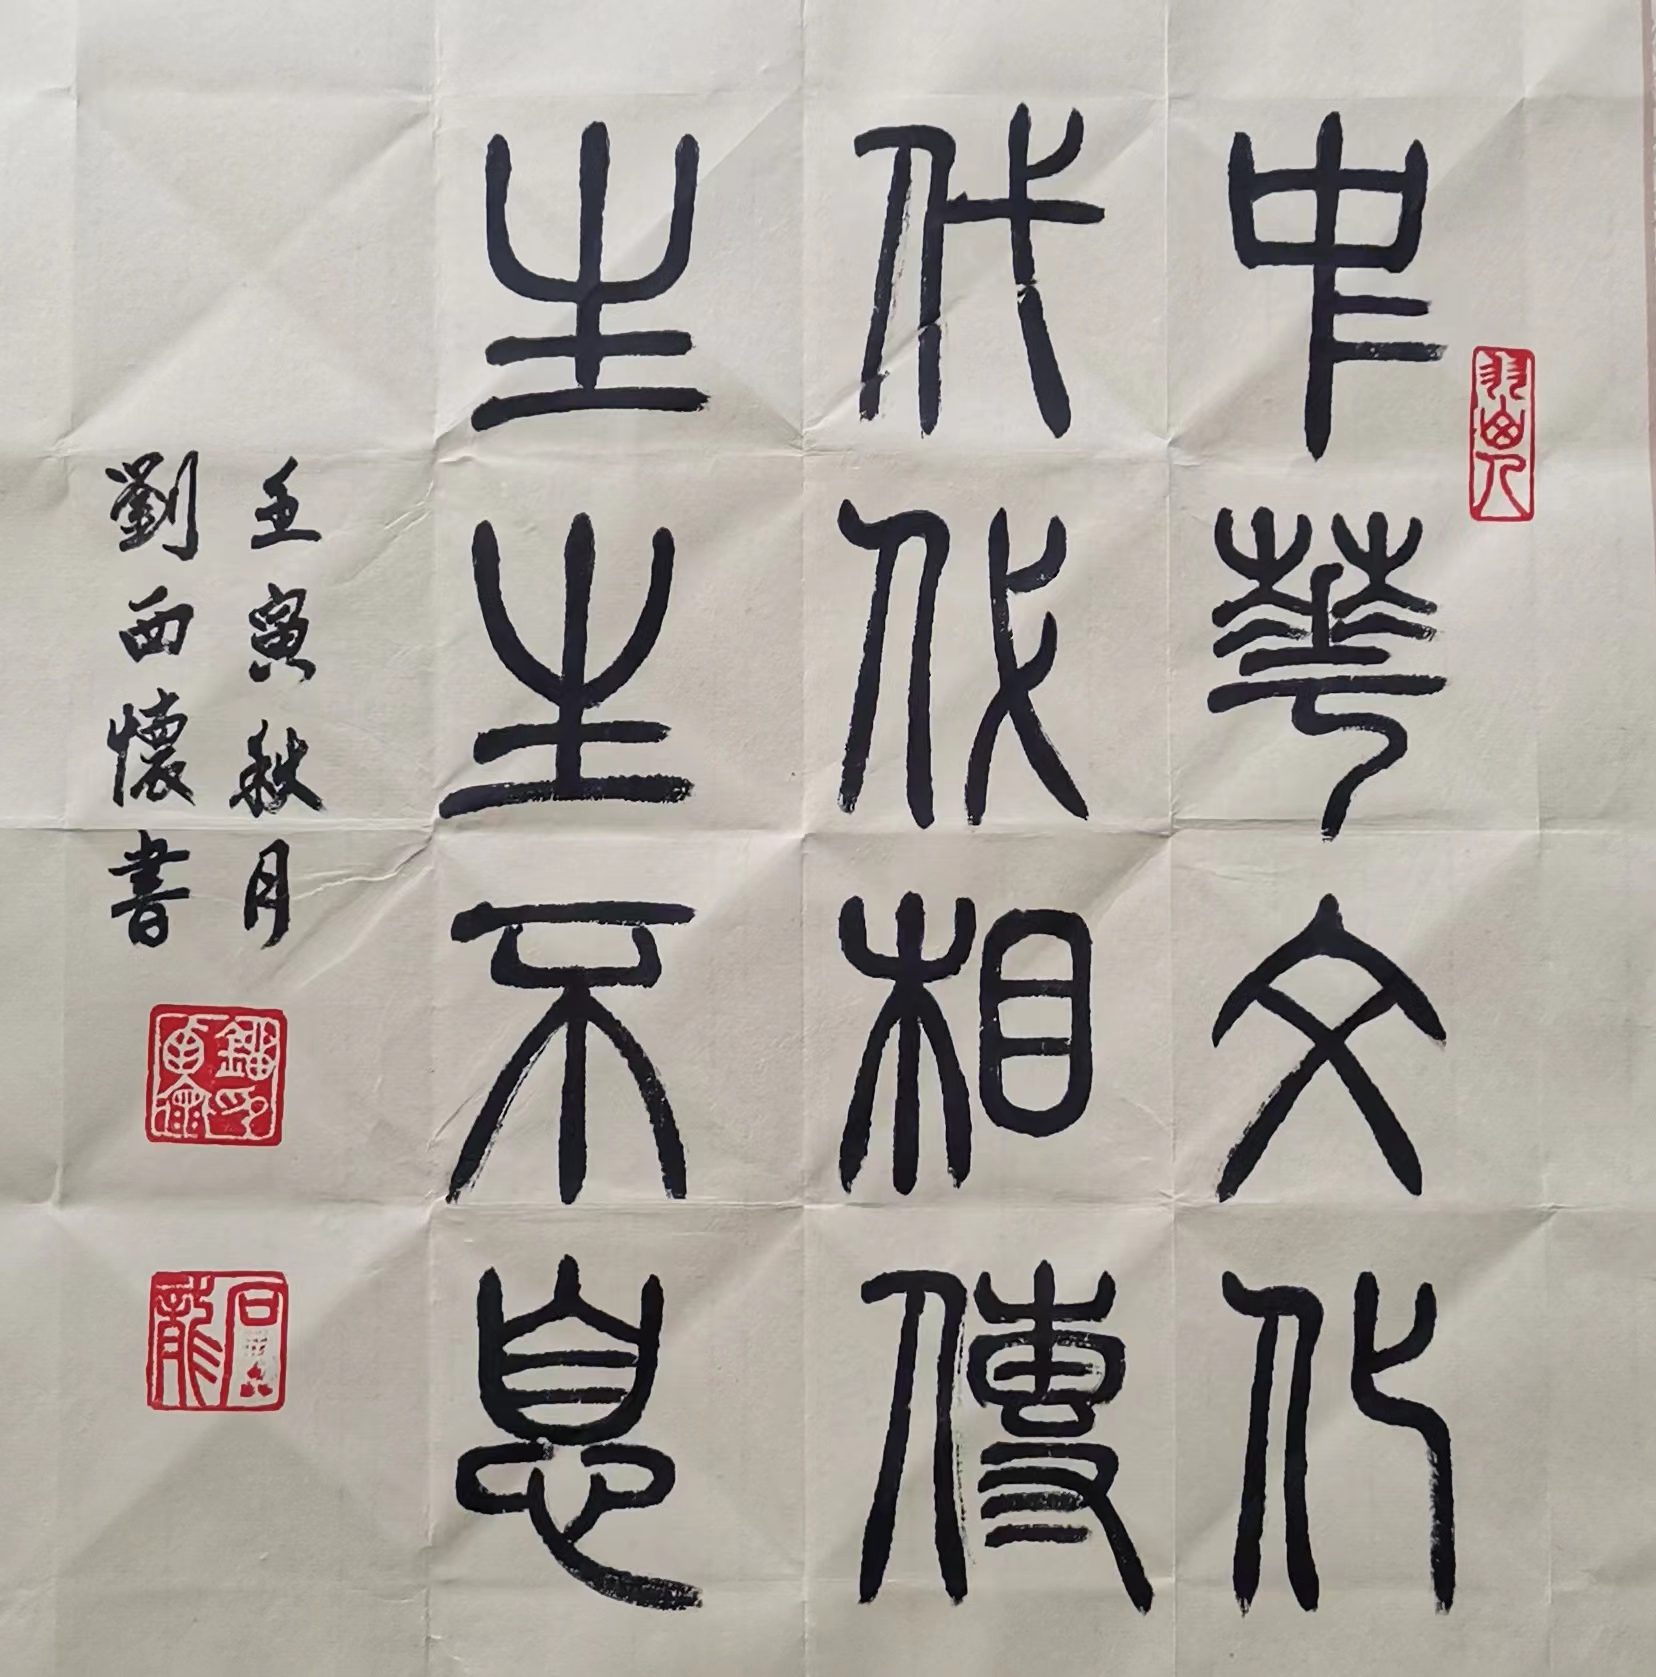 中華文化
代代相傳
生生不息
壬寅秋月
劉西懷書